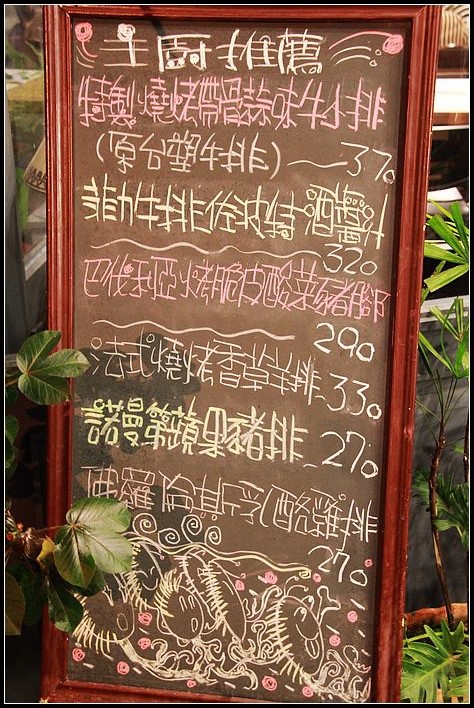 主厨推薦
特製燒烤帶骨蒜味牛小排
(原台塑牛排) 370
菲力牛排佐波特酒醬汁
320
巴伐利亞火烤脆皮酸菜豬腳
290
法式燒烤香草羊排 330
諾曼第蘋果豬排 270
佛羅倫斯乳酪雞排
270